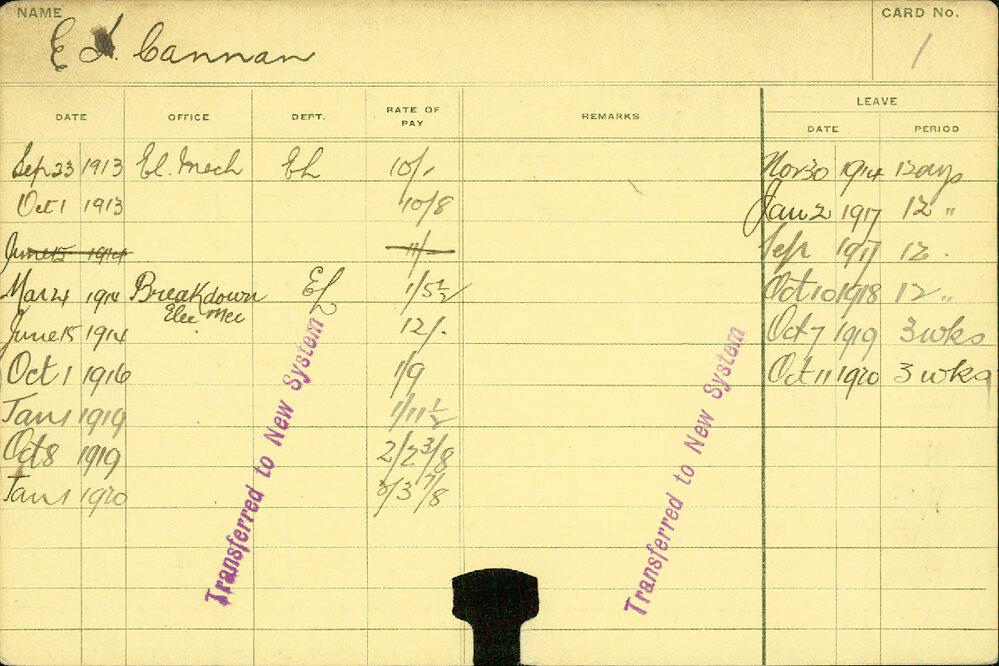 NAME CARD No.
E A. Cannan 1
LEAVE
DATE OFFICE DEPT. RATE OF PAY REMARKS DATE PERIOD
Sep 23 1913 El. Mech EL 10/- Nov 30 1914 12 days
Oct 1 1913 10/8 Jan 2 1917 12 "
June 15 1914 11/- Sep 1917 12 .
Mar 24 1914 Breakdown EL 1/5½ Oct 10 1918 12 "
Elec Mec
June 15 1914 12/- Oct 7 1919 3 wks
Oct 1 1916 1/9 Oct 11 1920 3 wks
Jan 1 1919 1/11½
Oct 8 1919 2/2 3/8
Jan 1 1920 2/3 7/8
Transferred to New System
Transferred to New System